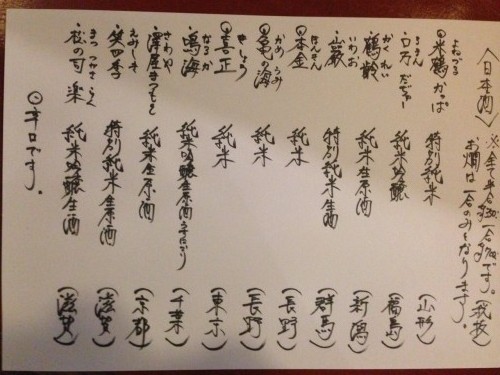 〈日本酒〉 ※全て半合、一合です。(税抜)
お燗は一合のみとなります。
よねづる
◎米鶴 かっぱ 特別純米 (山形)
ろまん
ロ万 だぢゅー 純米吟醸 (福島)
かくれい
鶴齢 純米生原酒 (新潟)
いわお
巌 特別純米生酒 (群馬)
ほんきん
◎本金 純米 (長野)
かめ うみ
◎亀の海 純米 (長野)
きしょう
◎喜正 純米 (東京)
なるか
鳴海 純米吟醸生原酒うすにごり (千葉)
さわや
澤屋まつもと 純米生原酒 (京都)
えみしき
笑四季 特別純米生原酒 (滋賀)
まつ つかさ らく
松の司 楽 純米吟醸生酒 (滋賀)
◎辛口です。